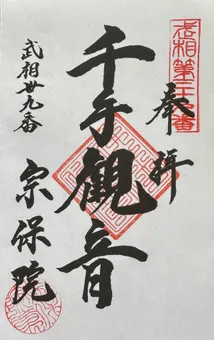 奉拝
武相第三十九番
千手觀音
武相卅九番
宗保院